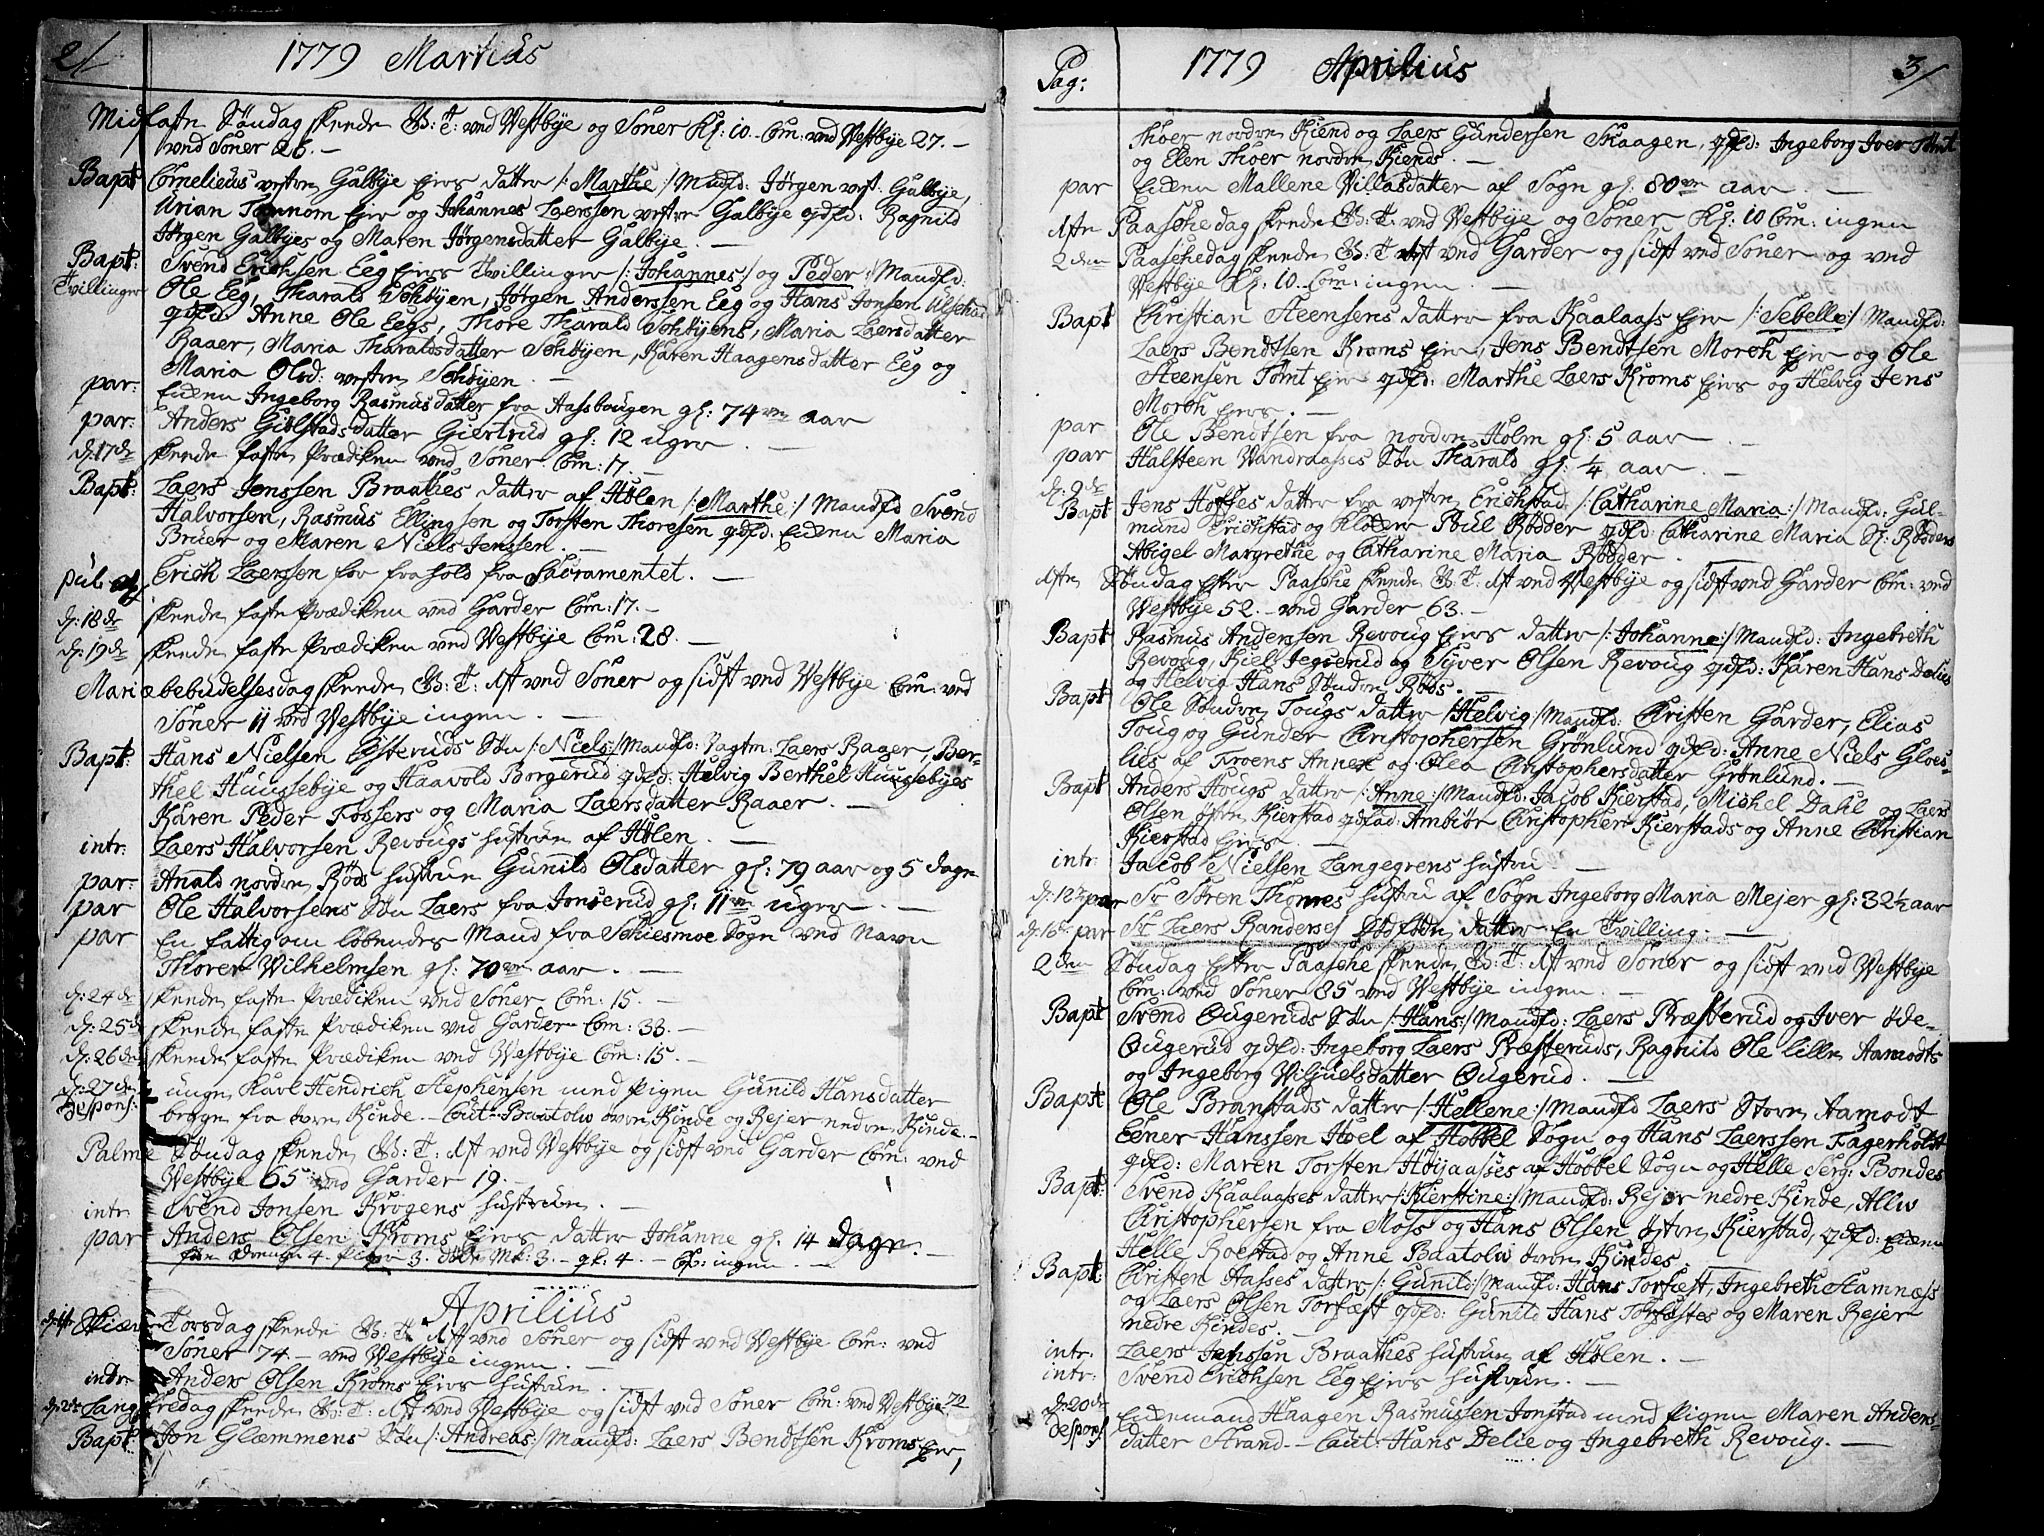 2/ 1779 Martius
Midfaste Søndag skeede G: T: ved Westbye og Soner Kl: 10 Com: ved Westbye 27. -
ved Soner 26. -
Bapt Cornelieus vestre Galbye Eiers datter /: Marthe :/ Maudfd: Jørgen vest: Galbye,
Urian Tonnom Eier og Johannes Laerssen vestre Galbye qdfd: Ragnild
Jørgen Galbyes og Maren Jørgensdatter Galbye. -
Bapt: Svend Erichsen Eeg Eiers Tvillinger /: Johannes :/ og Peder :/ Maudfd:
Tvillinger Ole Eeg, Tharald Sohbyen, Jørgen Anderssen Eeg og Hans Jonsen
qdfd: Anne Ole Eegs, Thore Tharald Sohbyens, Maria Laersdatter
Raaer, Maria Tharaldsdatter Sohbyen, Karen Haagensdatter Eeg og
Maria Olsd: vestre Sohbyen. -
par: Enken Ingeborg Rasmusdatter fra Aassbougen gl: 74 aar
par: Anders Giolstads datter Giertrud gl: 12 uger. -
d: 17de skeede faste Prædiken ved Soner Com: 17. -
Bapt: Laers Jenssen Braathes datter af Hølen /: Marthe :/ Maudfd Svend
Halvorsen, Rasmus Ellingsen og Torsten Thoresen qdfd: Enken Maria
Bruer og Maren Niels Jenssen. -
pub: Erich Laerssen for frahold fra Sacramentet. -
d: 18de skeede faste Prædiken ved Garder Com: 17. -
d: 19de skeede faste Prædiken ved Westbye Com: 28. -
Mariæbebudelsesdag skeede G: T: Ast ved Soner og sidst ved Westbye Com: ved
Soner 11 ved Westbye ingen. -
Bapt: Hans Nielsen Østeruds Søn /: Niels :/ Maudfd: Vagtm: Laers Raaer, Ber-
thel Huuslebye og Haavold Borgerud qdfd: Helvig Berthel Huuslebyes
Karen Peder Fossers og Maria Laersdatter Raaer. -
intr: Laers Halvorsen Revougs hustrue af Hølen. -
par: Anald nordre Røds hustrue Gunild Olsdatter gl: 79 aar og 5 dage
par Ole Halvorsens Søn Laers fra Jonserud gl: 11 uger. -
par En fattig om løbendes Mand fra Schiesmoe Sogn ved Navn
Thorer Wilhelmsen gl: 70 aar. -
d: 24de skeede faste Prædiken ved Soner Com: 15. -
d: 25de skeede faste Prædiken ved Garder Com: 33. -
d: 26de skeede faste Prædiken ved Westbye Com: 15. -
d: 27de unge Karl Hendrich Stephensen med Pigen Gunild Hansdatter
Despons: begge fra øvre Kinde - Caut: Baatolv øvre Kinde og Rejer nedre Kinde -
Palme Søndag skeede G: T: Ast ved Westbye og sidst ved Garder Com: ved
Westbye 65 ved Garder 19. -
intr Svend Jonsen Krogens hustrue. -
par Anders Olsen Kroms Eiers datter Johanne gl: 14 dage. -
føde Drenge 4. Piger 3. døde Mk: 3. - qk: 4. - Cop: ingen. -
Aprilius
d: 1ste Skiær Torsdag skeede G: T: Ast ved Soner og sidst ved Westbye Com: ved
Soner 74. - ved Westbye ingen. -
intr: Anders Olsen Kroms Eiers hustrue. -
d: 2de Lang fredag skeede G: T: Ast ved Westbye og sidst ved Soner Com: ved Westbye 72
Bapt: Jon Glemmens Søn /: Andreas :/ Maudfd: Laers Bendtsen Kroms Eier,
Pag: 1779 Aprilius 3/
Thoer nordre Kiend og Laers Gundersen Skaagen, qdfd: Ingeborg Iver Tømt
og Elen Thoer nordre Kiends. -
par Enken Mallene Villasdatter af Sogn gl: 80 aar. -
1ste Paaschedag skeede G: T: ved Westbye og Soner Kl: 10 Com: ingen
2den Paaschedag skeede G: T: Ast ved Garder og sidst ved Soner og ved
Westbye Kl: 10. Com: ingen. -
Bapt Christian Steensens datter fra Raalaass Eier /: Sebelle :/ Maudfd:
Laers Bendtsen Kroms Eier, Jens Bendtsen Morch Eier og Ole
Steensen Tømt Eier qdfd: Marthe Laers Kroms Eiers og Helvig Jens
Morch Eiers. -
par Ole Bendtsen fra nordre Holm gl: 5 aar -
par Halsteen Vandraasses Søn Tharald gl: 1/4 aar. -
d: 9de Jens Hoffes datter fra vestre Erichstad /: Catharine Maria :/ Maudfd: Gul-
Bapt mund Erichstad og Kloker Poul Rødder qdfd: Catharine Maria Sr: Rødders
Abigel Margrethe og Catharine Maria Rødder. -
1ste Søndag Efter Paasche skeede G: T: Ast ved Westbye og sidst ved Garder Com: ved
Westbye 52. - ved Garder 63. -
Bapt Rasmus Anderssen Revoug Eiers datter /: Johanne :/ Maudfd: Ingebreth
Revoug, Kiel Jegserud og Syver Olsen Revoug qdfd: Karen Hans Delies
og Helvig Hans Søndre Røds. -
Bapt Ole Søndre Tougs datter /: Helvig :/ Maudfd: Christen Garder, Elias
Toug og Gunder Christophersen Grønlund qdfd: Anne Niels Gloes-
lies af Froens Annex og Olea Christophersdatter Grønlund. -
Bapt Anders Hougs datter /: Anne :/ Maudfd: Jacob Kierstad, Michel Dahl og Laers
Olsen østre Kierstad qdfd: Ambiør Christopher Kierstads og Anne Christian
Kierstad Eiers. -
intr: Jacob Nielsen Langegrens hustrue. -
d: 12te par Sr Søren Thomes hustrue af Sogn Ingeborg Maria Mejer gl: 32 1/2 aar
d: 16 par Sr Laers Randers Dødfødte datter En Tvilling. -
2den Søndag Efter Paasche skeede G: T: Ast ved Soner og sidst ved Westbye
Com: ved Soner 85 ved Westbye ingen. -
Bapt Svend Ougeruds Søn /: Hans :/ Maudfd: Laers Præsterud og Iver øde-
Ougerud qdfd: Ingeborg Laers Præsteruds, Ragnild Ole lille Aamodts
og Ingeborg Viljuelsdatter Ougerud. -
Bapt Ole Branstads datter /: Hellene :/ Maudfd Laers Store Aamodt
Eener Hanssen Hoel af Hobbel Sogn og Hans Laerssen Fagerholt
qdfd: Maren Torsten Höijaasses af Hobbel Sogn og Helle Serg: Bondes
Bapt: Svend Raalaasses datter /: Kierstine :/ Maudfd: Rejer nedre Kinde, Allis
Christophersen fra Moss og Hans Olsen østre Kierstad, qdfd: Enken
Helle Roestad og Anne Baatolv øvre Kindes. -
Bapt: Christen Aasses datter /: Gunild :/ Maudfd: Hans Torfæst, Ingebreth Stamness
og Laers Olsen Torfæst qdfd: Gunild Hans Torfæstes og Maren Rejer
nedre Kindes. -
intr. Laers Jenssen Braathes hustrue af Hølen. -
intr: Svend Erichsen Eeg Eiers hustrue. -
d: 20de Enkemand Haagen Rasmussen Jonstad med Pigen Maren Anders-
Despons: datter Strand - Caut: Hans Delie og Ingebreth Revoug. -